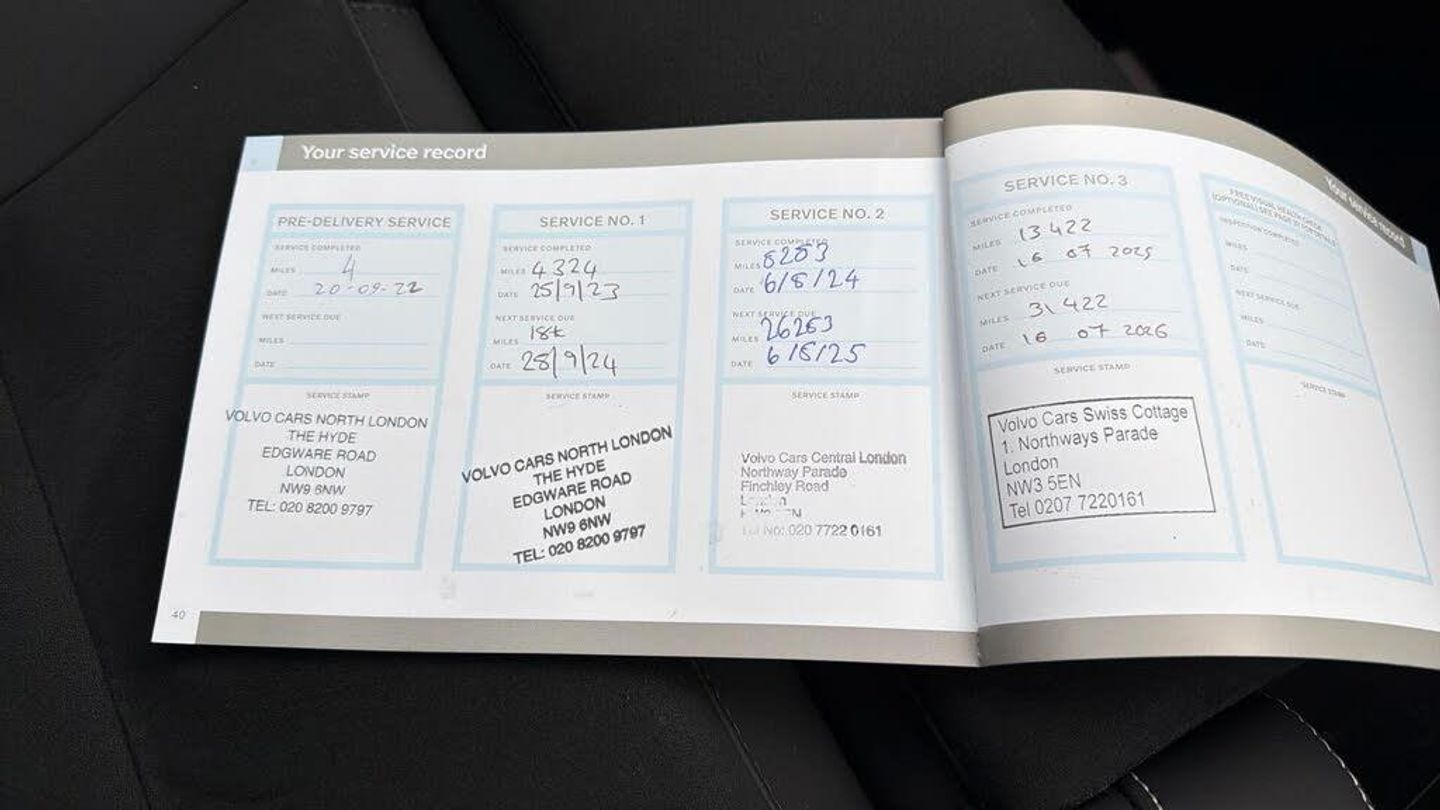 Your service record
PRE-DELIVERY SERVICE
SERVICE COMPLETED
MILES 4
DATE 20-09-22
NEXT SERVICE DUE
MILES
DATE
SERVICE STAMP
VOLVO CARS NORTH LONDON
THE HYDE
EDGWARE ROAD
LONDON
NW9 6NW
TEL: 020 8200 9797
SERVICE NO. 1
SERVICE COMPLETED
MILES 4324
DATE 25/9/23
NEXT SERVICE DUE
MILES 18k
DATE 25/9/24
SERVICE STAMP
VOLVO CARS NORTH LONDON
THE HYDE
EDGWARE ROAD
LONDON
NW9 6NW
TEL: 020 8200 9797
SERVICE NO. 2
SERVICE COMPLETED
MILES 8263
DATE 6/8/24
NEXT SERVICE DUE
MILES 26263
DATE 6/8/25
SERVICE STAMP
Volvo Cars Central London
Northway Parade
Finchley Road
No: 020 7722 0161
40
Your service record
SERVICE NO. 3
SERVICE COMPLETED
MILES 13 422
DATE 16 07 2025
NEXT SERVICE DUE
MILES 31 422
DATE 16 07 2026
SERVICE STAMP
Volvo Cars Swiss Cottage
1. Northways Parade
London
NW3 5EN
Tel 0207 7220161
FREE VISUAL HEALTH CHECK
(OPTIONAL) SEE PAGE 37 FOR DETAILS
INSPECTION COMPLETED
MILES
DATE
NEXT SERVICE DUE
MILES
DATE
SERVICE STAMP